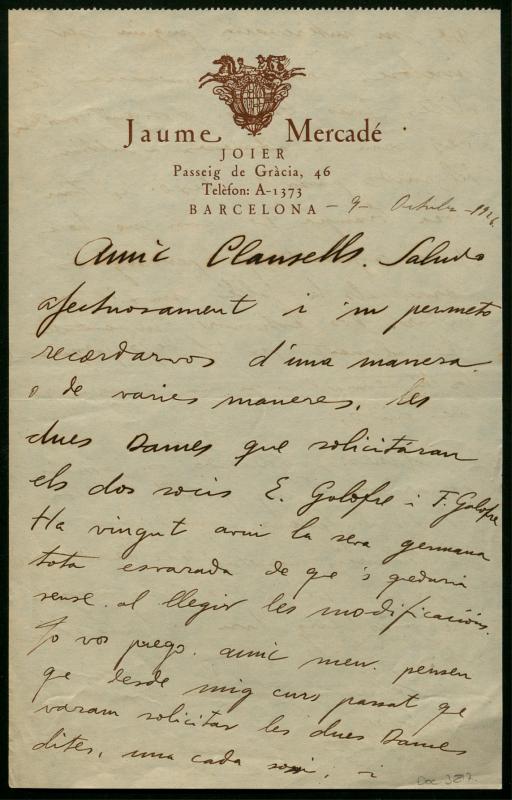 Jaume Mercadé
JOIER
Passeig de Gràcia, 46
Telèfon: A-1373
BARCELONA - 9 - Octubre - 1926.
Amic Clausells. Saludo
afectuosament i 'm permeto
recordarvos d'una manera
o de varies maneres, les
dues Dames que solicitáran
els dos socis E. Golofre i F. Golofre
Ha vingut avui la seva germana
tota esvarada de que 's quedaria
sense al llegir les modificacións.
Jo vos prego. amic meu. penseu
qe desde mig curs passat qe
varam solicitar les dues Dames
dites, una cada soci, i
Doc. 3817.